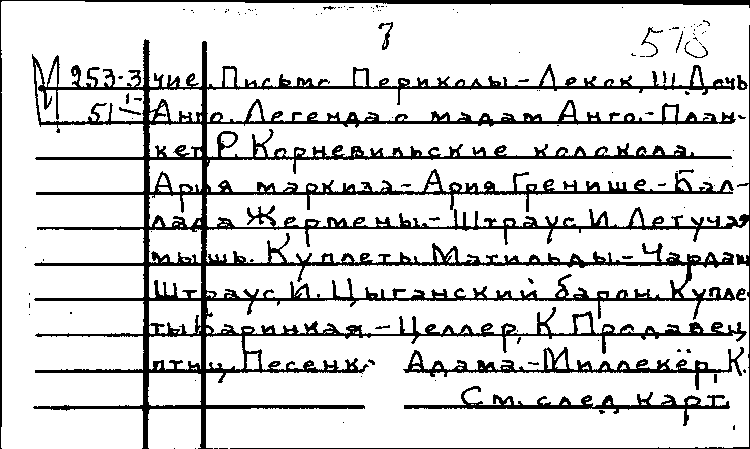 7 578
253-3 чие. Письмо Периколы.- Лекок, Ш. Дочь
51 Анго. Легенда о мадам Анго.- План-
кет, Р. Корневильские колокола.
Ария маркиза.- Ария Гренише.- Бал-
лада Жермены.- Штраус, И. Летучая
мышь. Куплеты Матильды.- Чардаш
Штраус, И. Цыганский барон. Купле-
ты Баринкая.- Целлер, К. Продавец
птиц. Песенка Адама.- Миллекёр, К.
См. след. карт.